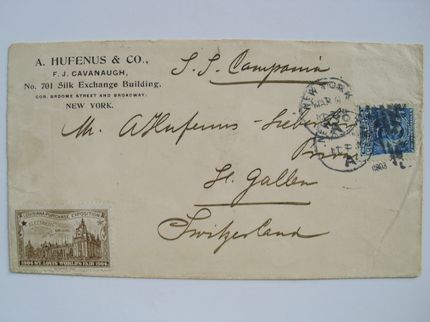 A. HUFENUS & CO.,
F. J. CAVANAUGH,
No. 701 Silk Exchange Building,
COR. BROOME STREET AND BROADWAY.
NEW YORK.
S. S. Campania
NEW YORK
MAR
M. A Hufenus-
St. Gallen
Switzerland
LOUISIANA PURCHASE EXPOSITION
ELECTRICITY
1904 ST. LOUIS WORLD'S FAIR 1904
1903